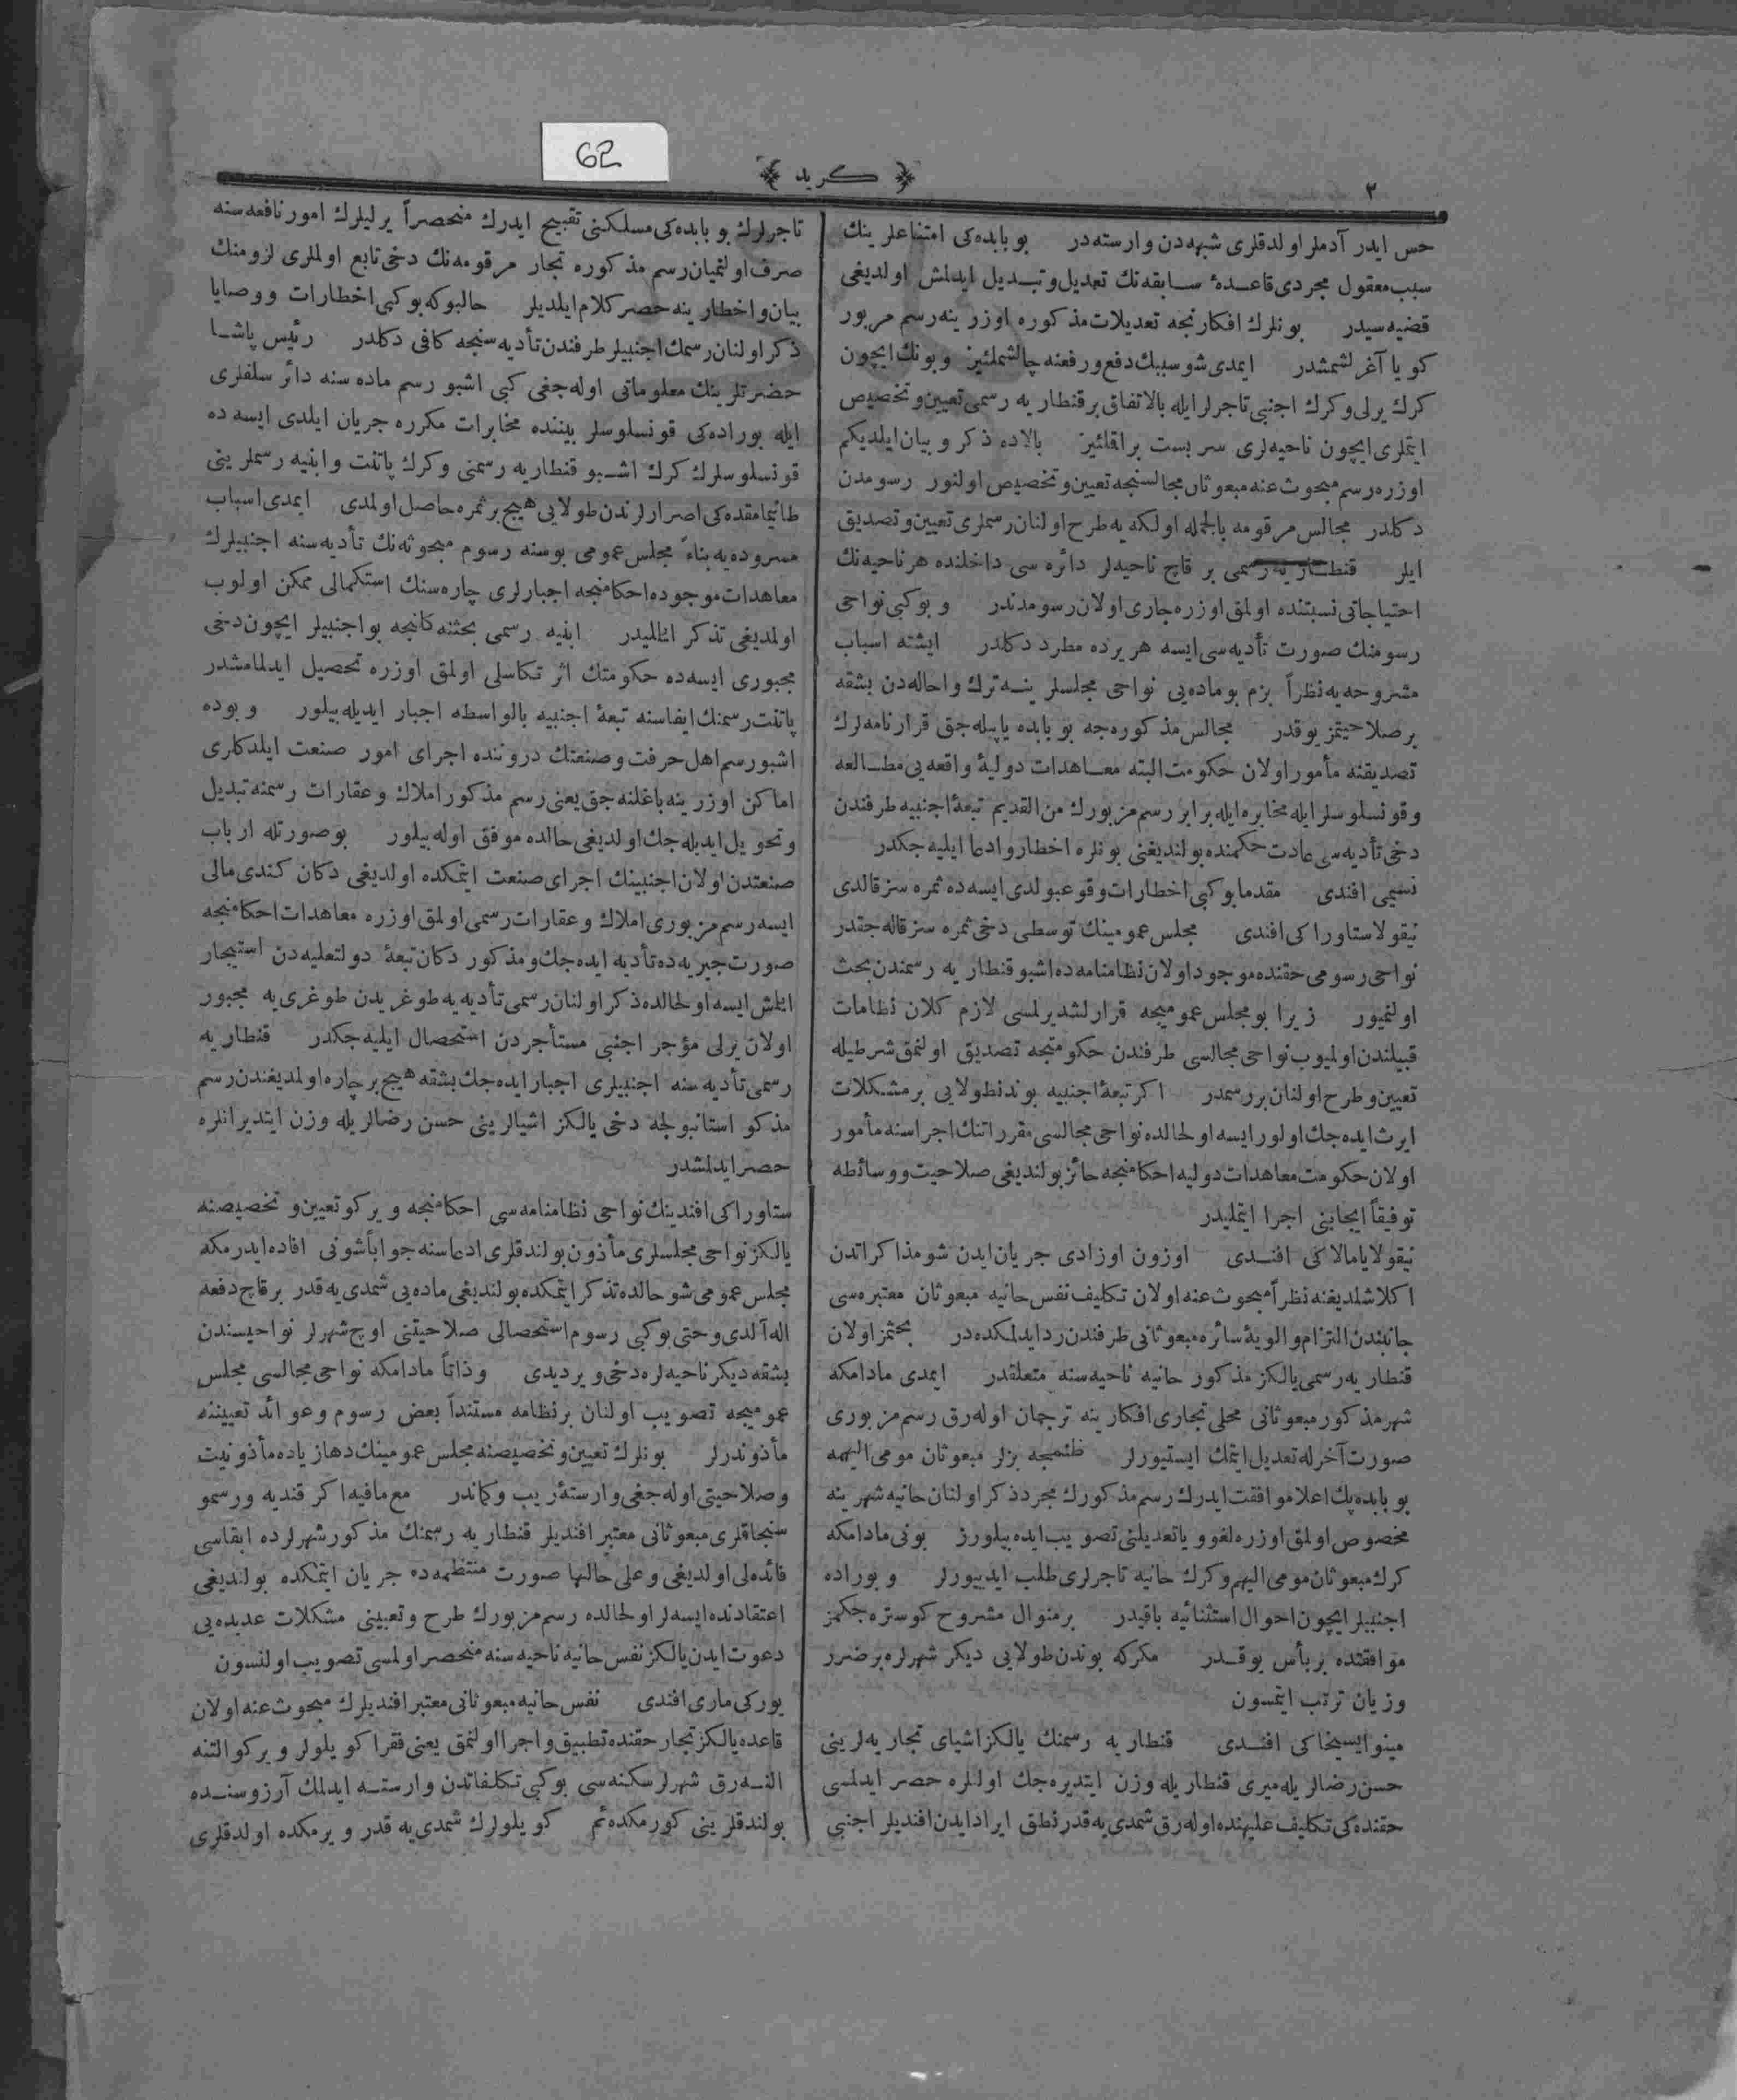 62
٢
﴿ كريد ﴾
حس ايدر آدملر اولدقلرى شبهه‌دن وارسته‌در بو بابده‌كى امتناعلرينك
سبب معقول مجردى قاعدۀ سابقه‌نك تعديل و تبديل ايدلمش اولديغى
قضيه‌سيدر بونلرك افكارنجه تعديلات مذكوره اوزرينه رسم مزبور
كويا آغرلشمشدر ايمدى شو سببك دفع و رفعنه چالشملىيز و بونك ايچون
كرك يرلى و كرك اجنبى تاجرلر ايله بالاتفاق بر قنطاريه رسمى تعيين و تخصيص
ايتملرى ايچون ناحيه‌لرى سربست براقملىيز بالاده ذكر و بيان ايلديكم
اوزره رسم مبحوث عنه مبعوثان مجالسنجه تعيين و تخصيص اولنور رسومدن
دكلدر مجالس مرقومه بالجمله اولكه‌يه طرح اولنان رسملرى تعيين و تصديق
ايلر قنطاريه رسمى بر قاچ ناحيه‌لر دائره‌سى داخلنده هر ناحيه‌نك
احتياجاتى نسبتنده اولمق اوزره جارى اولان رسومدندر و بو كبى نواحى
رسومنك صورت تأديه‌سى ايسه هر يرده مطرد دكلدر ايشته اسباب
مشروحه‌يه نظراً بزم بو ماده‌يى نواحى مجلسلرينه ترك و احاله‌دن بشقه
بر صلاحيتمز يوقدر مجالس مذكوره‌جه بو بابده ياپيله‌جق قرارنامه‌لرك
تصديقنه مأمور اولان حكومت البته معاهدات دوليۀ واقعه‌يى مطالعه
و قونسلوسلر ايله مخابره ايله برابر رسم مزبورك من القديم تبعۀ اجنبيه طرفندن
دخى تأديه‌سى عادت حكمنده بولنديغنى بونلره اخطار و ادعا ايليه‌جكدر
نسيمى افندى مقدما بو كبى اخطارات وقوعبولدى ايسه‌ده ثمره‌سز قالدى
نيقولا ستاوراكى افندى مجلس عمومينك توسطى دخى ثمره‌سز قاله‌جقدر
نواحى رسومى حقنده موجود اولان نظامنامه‌ده اشبو قنطاريه رسمندن بحث
اولنميور زيرا بو مجلس عموميجه قرارلشديرلمسى لازم كلان نظامات
قبيلندن اولميوب نواحى مجالسى طرفندن حكومتجه تصديق اولنمق شرطيله
تعيين و طرح اولنان بر رسمدر اكر تبعۀ اجنبيه بوندنطولايى بر مشكلات
ايرث ايده‌جك اولور ايسه اولحالده نواحى مجالسى مقرراتنك اجراسنه مأمور
اولان حكومت معاهدات دوليه احكامنجه حائز بولنديغى صلاحيت و وسائطه
توفيقاً ايجابنى اجرا ايتمليدر
نيقولا يامالاكى افندى اوزون اوزادى جريان ايدن شو مذاكراتدن
اكلاشلديغنه نظراً مبحوث عنه اولان تكليف نفس حانيه مبعوثان معتبره‌سى
جانبندن التزام و الويۀ سائره مبعوثانى طرفندن رد ايدلمكده‌در بحثمز اولان
قنطاريه رسمى يالكز مذكور حانيه ناحيه‌سنه متعلقدر ايمدى مادامكه
شهر مذكور مبعوثانى محلى تجارى افكارينه ترجمان اوله‌رق رسم مزبورى
صورت آخرله تعديل ايتمك ايستيورلر ظنمجه بزلر مبعوثان مومى اليهمه
بو بابده پك اعلا موافقت ايدرك رسم مذكورك مجرد ذكر اولنان حانيه شهرينه
مخصوص اولمق اوزره لغو و يا تعديلنى تصويب ايده‌بيلورز بونى مادامكه
كرك مبعوثان مومى اليهم و كرك حانيه تاجرلرى طلب ايدييورلر و بوراده
اجنبيلر ايچون احوال استثنائيه باقيدر بر منوال مشروح كوستره‌جكمز
موافقتده بر بأس يوقدر مكركه بوندن طولايى ديكر شهرلره بر ضرر
و زيان ترتب ايتمسون
مينو ايسيخاكى افندى قنطاريه رسمنك يالكز اشياى تجاريه‌لرينى
حسن رضالريله ميرى قنطاريله وزن ايتديره‌جك اولنلره حصر ايدلمسى
حقنده‌كى تكليف عليهنده اوله‌رق شمدى‌يه قدر نطق ايراد ايدن افنديلر اجنبى
تاجرلرك بو بابده‌كى مسلكنى تقبيح ايدرك منحصراً يرليلرك امور نافعه‌سنه
صرف اولنميان رسم مذكوره تجار مرقومه‌نك دخى تابع اولملرى لزومنك
بيان و اخطارينه حصر كلام ايلديلر حالبوكه بو كبى اخطارات و وصايا
ذكر اولنان رسمك اجنبيلر طرفندن تأديه‌سنجه كافى دكلدر رئيس پاشا
حضرتلرينك معلوماتى اوله‌جغى كبى اشبو رسم ماده‌سنه دائر سلفلرى
ايله بوراده‌كى قونسلوسلر بيننده مخابرات مكرره جريان ايلدى ايسه‌ده
قونسلوسلرك كرك اشبو قنطاريه رسمنى و كرك پاتنت و ابنيه رسملرينى
طانيمامقده‌كى اصرارلرندن طولايى هيچ بر ثمره حاصل اولمدى ايمدى اسباب
مسروده‌يه بناءً مجلس عمومى بو سنه رسوم مبحوثه‌نك تأديه‌سنه اجنبيلرك
معاهدات موجوده احكامنجه اجبارلرى چاره‌سنك استكمالى ممكن اولوب
اولمديغى تذكر ايتمليدر ابنيه رسمى بحثنه كلنجه بو اجنبيلر ايچون دخى
مجبورى ايسه‌ده حكومتك اثر تكاسلى اولمق اوزره تحصيل ايدلمامشدر
پاتنت رسمنك ايفاسنه تبعۀ اجنبيه بالواسطه اجبار ايديله‌بيلور و بوده
اشبو رسم اهل حرفت و صنعتك دروننده اجراى امور صنعت ايلدكلرى
اماكن اوزرينه باغلنه‌جق يعنى رسم مذكور املاك و عقارات رسمنه تبديل
و تحويل ايديله‌جك اولديغى حالده موفق اوله‌بيلور بو صورتله ارباب
صنعتدن اولان اجنبينك اجراى صنعت ايتمكده اولديغى دكان كندى مالى
ايسه رسم مزبورى املاك و عقارات رسمى اولمق اوزره معاهدات احكامنجه
صورت جبريه‌ده تأديه ايده‌جك و مذكور دكان تبعۀ دولتعليه‌دن استيجار
ايتمش ايسه اولحالده ذكر اولنان رسمى تأديه‌يه طوغريدن طوغرى‌يه مجبور
اولان يرلى مؤجر اجنبى مستأجردن استحصال ايليه‌جكدر قنطاريه
رسمى تأديه‌سنه اجنبيلرى اجبار ايده‌جك بشقه هيچ بر چاره اولمديغندن رسم
مذكو استانبولجه دخى يالكز اشيالرينى حسن رضالريله وزن ايتديرانلره
حصر ايدلمشدر
ستاوراكى افندينك نواحى نظامنامه‌سى احكامنجه ويركو تعيين و تخصيصنه
يالكز نواحى مجلسلرى مأذون بولندقلرى ادعاسنه جواباً شونى افاده ايدرمكه
مجلس عمومى شو حالده تذكر ايتمكده بولنديغى ماده‌يى شمدى‌يه قدر بر قاچ دفعه
اله آلدى و حتى بو كبى رسوم استحصالى صلاحيتنى اوچ شهرلر نواحيسندن
بشقه ديكر ناحيه‌لره دخى ويرديدى و ذاتاً مادامكه نواحى مجالسى مجلس
عموميجه تصويب اولنان بر نظامه مستنداً بعض رسوم و عوائد تعييننه
مأذوندرلر بونلرك تعيين و تخصيصنه مجلس عمومينك دها زياده مأذونيت
و صلاحيتى اوله‌جغى وارستۀ ريب و كماندر مع مافيه اكر قنديه و رسمو
سنجاقلرى مبعوثانى معتبر افنديلر قنطاريه رسمنك مذكور شهرلرده ابقاسى
فائده‌لى اولديغى و على حالها صورت منتظمه‌ده جريان ايتمكده بولنديغى
اعتقادنده ايسه‌لر اولحالده رسم مزبورك طرح و تعيينى مشكلات عديده‌يى
دعوت ايدن يالكز نفس حانيه ناحيه‌سنه منحصر اولمسى تصويب اولنسون
يوركى مارى افندى نفس حانيه مبعوثانى معتبر افنديلرك مبحوث عنه اولان
قاعده يالكز تجار حقنده تطبيق و اجرا اولنمق يعنى فقرا كويلولر ويركو التنه
النه‌رق شهرلر سكنه‌سى بو كبى تكلفاتدن وارسته ايدلمك آرزوسنده
بولندقلرينى كورمكده‌ئم كويلولرك شمدى‌يه قدر ويرمكده اولدقلرى